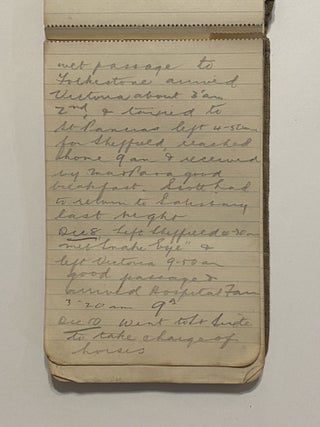 wet passage to
Folkestone arrived
Victoria about 3 am
2nd, & taxied to
St Pancras left 4-50am
for Sheffield, reached
home 9am & received
by Mar Para good
breakfast. Scott had
to return to Salisbury
last night
Dec 8 Left Sheffield
met "Snake Eye" &
left Victoria 9-50 am
good passage &
arrived Hospital Farm
3-20am 9th
Dec 10 Went to
to take charge of
horses